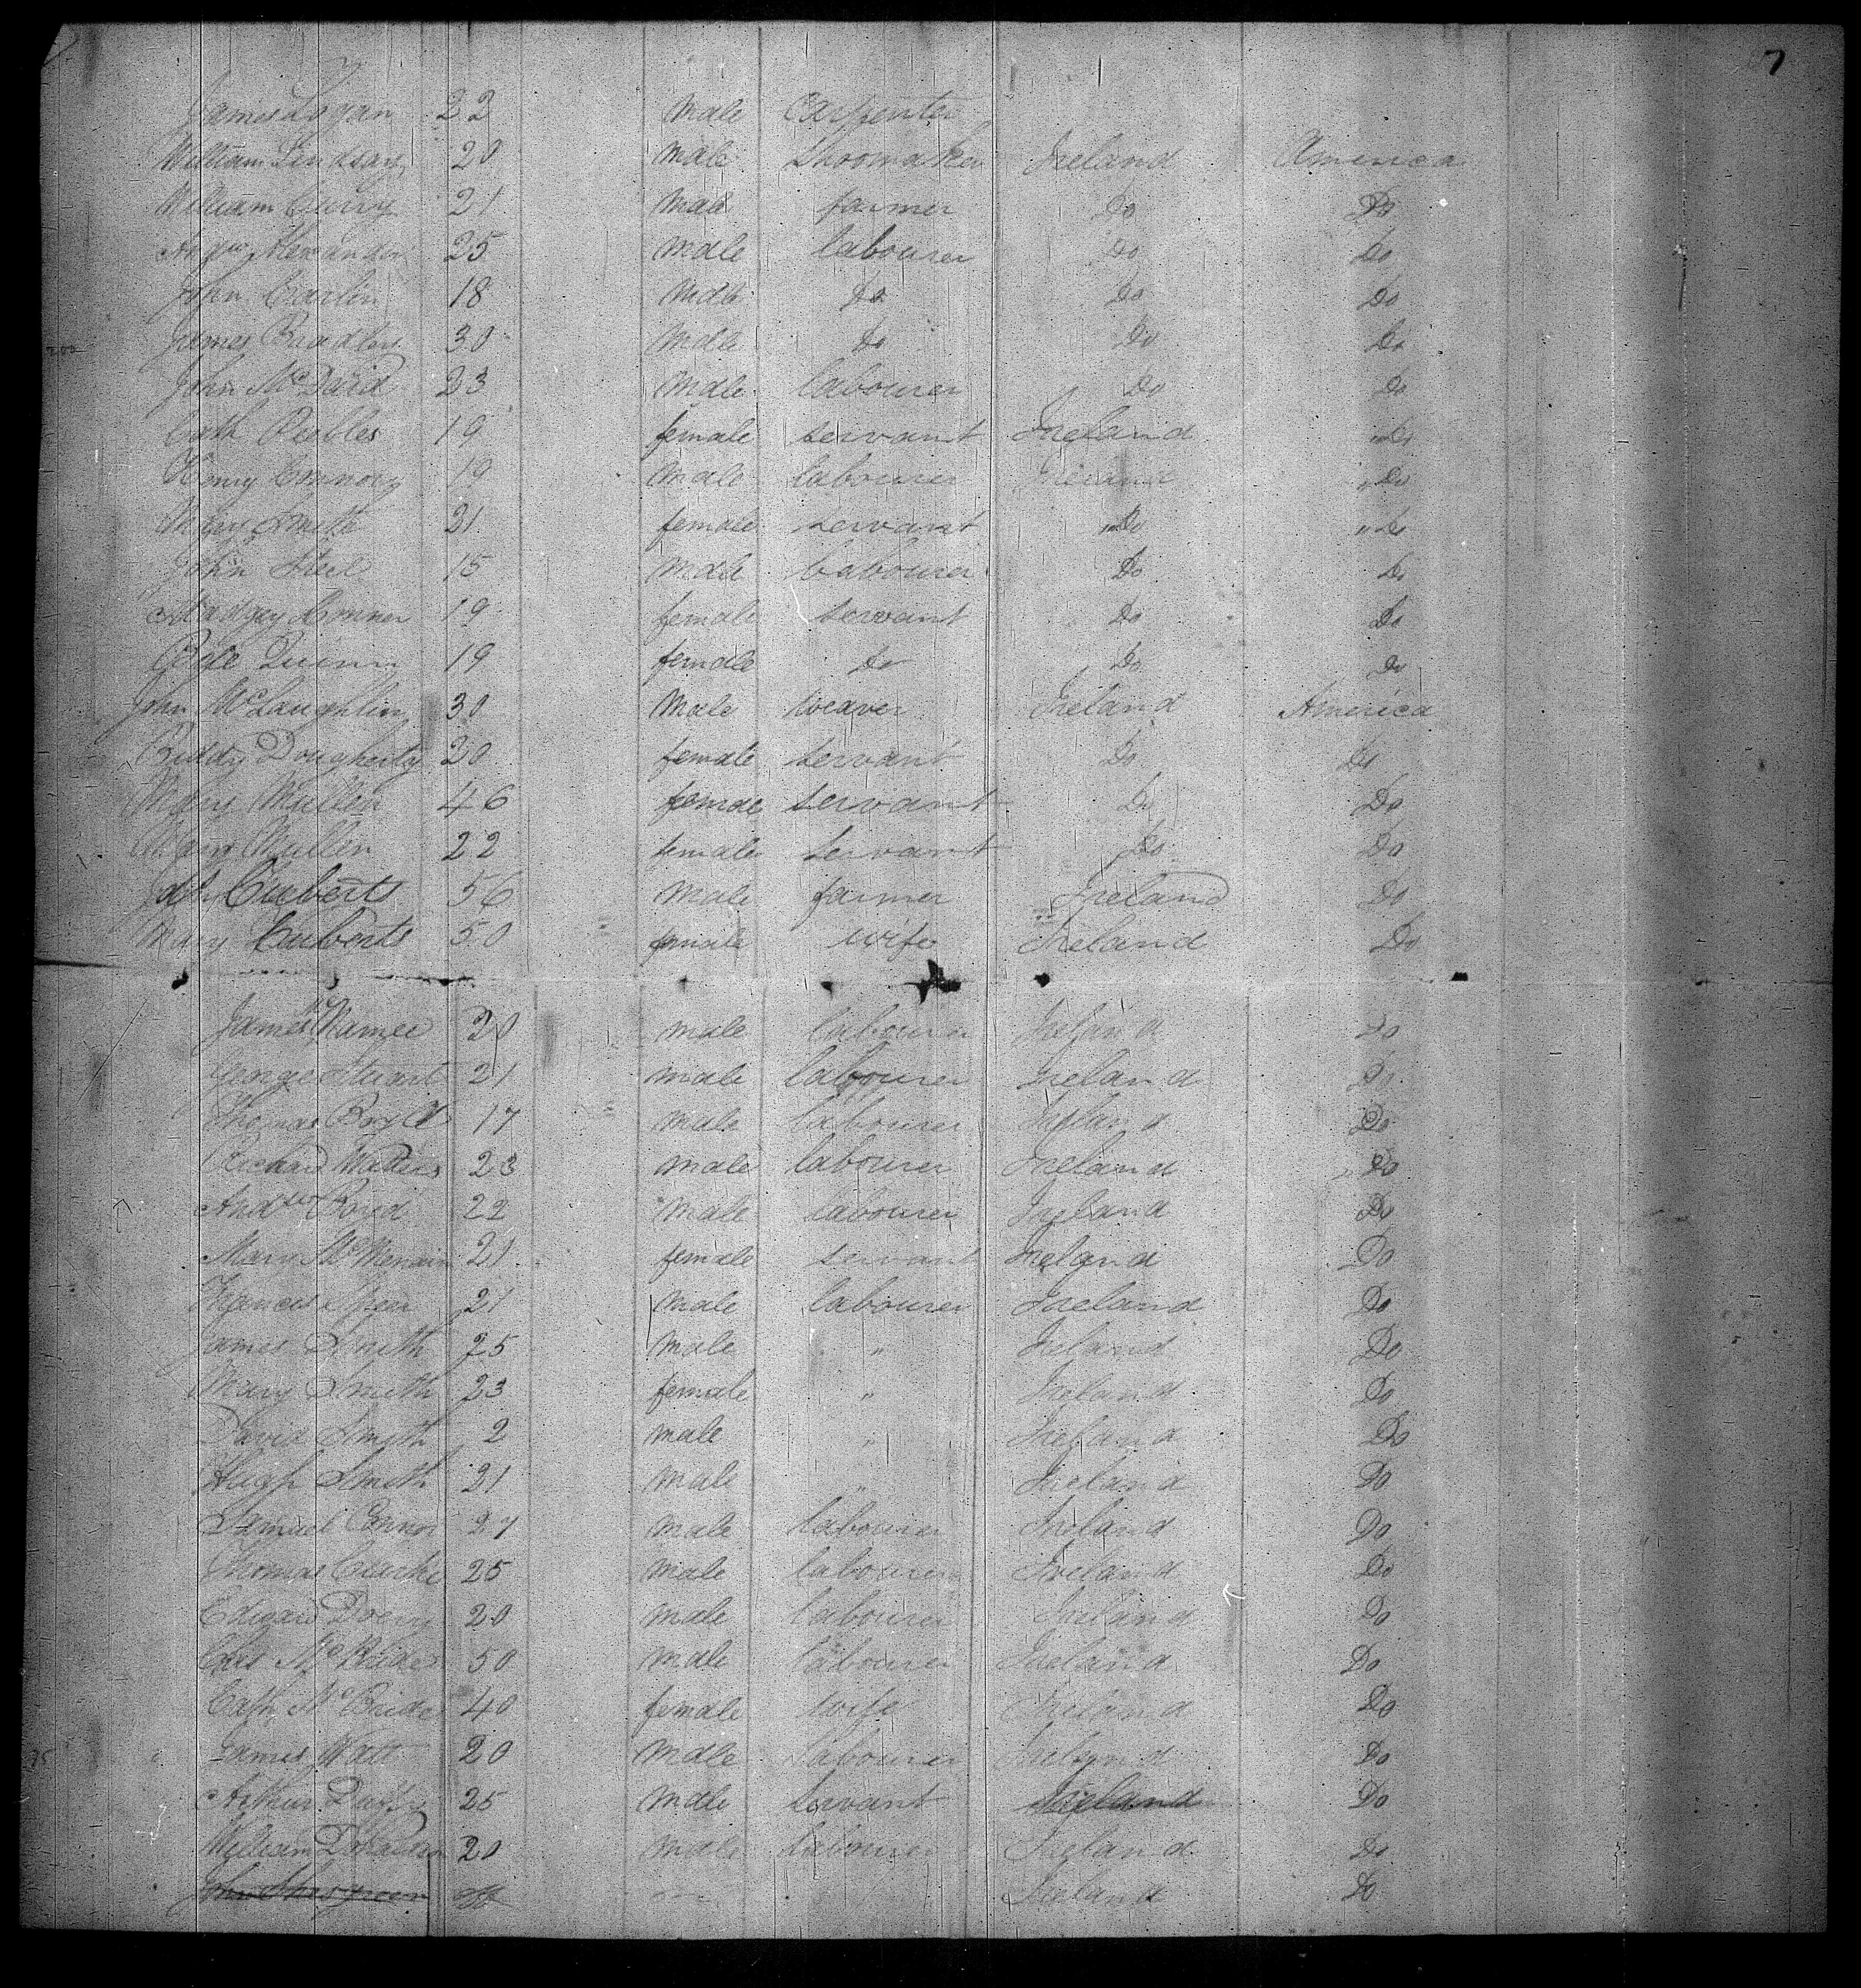 7
James Logan 22 male Carpenter
William Lindsay 20 male Shoomaker Ireland America
William Curry 21 male farmer Do Do
Andw Alexander 25 male labourer Do Do
John Carlin 18 male Do Do Do
James Bradley 30 male Do Do Do
John McDaid 23 male labourer Do Do
Cath Peebles 19 female servant Ireland "Do
Henry Connory 19 male labourer Ireland "Do
Mary Smith 21 female servant "Do "Do
John Steel 15 male labourer Do Do
Madgey Conner 19 female servant Do Do
Quinn 19 female Do Do Do
John McLaughlin 30 Male weaver Ireland America
Biddy Dougherty 20 female servant Do Do
Mary Mullen 46 female servant Do Do
Mary Mullen 22 female servant Do Do
Cuberts 56 male farmer Ireland Do
Mary Cuberts 50 female wife Ireland Do
James McNamee 20 male labourer Ireland Do
George Stuart 21 male labourer Ireland Do
Thomas 17 male labourer Ireland Do
Richard Walters 23 male labourer Ireland Do
Andw Boyd 22 male labourer Ireland Do
Mary McMenain 21 female servant Ireland Do
Frances 21 male labourer Ireland Do
James Smith 25 male " Ireland Do
Mary Smith 23 female " Ireland Do
David Smith 2 male " Ireland Do
Hugh Smith 21 male " Ireland Do
Samuel Connor 27 male labourer Ireland Do
Thomas Clarke 25 male labourer Ireland Do
Edward 20 male labourer Ireland Do
McBride 50 male labourer Ireland Do
Cath McBride 40 female wife Ireland Do
75 James Watt 20 male labourer Ireland Do
Arthur Duffy 25 male servant Ireland Do
William 20 male labourer Ireland Do
John Ireland Do